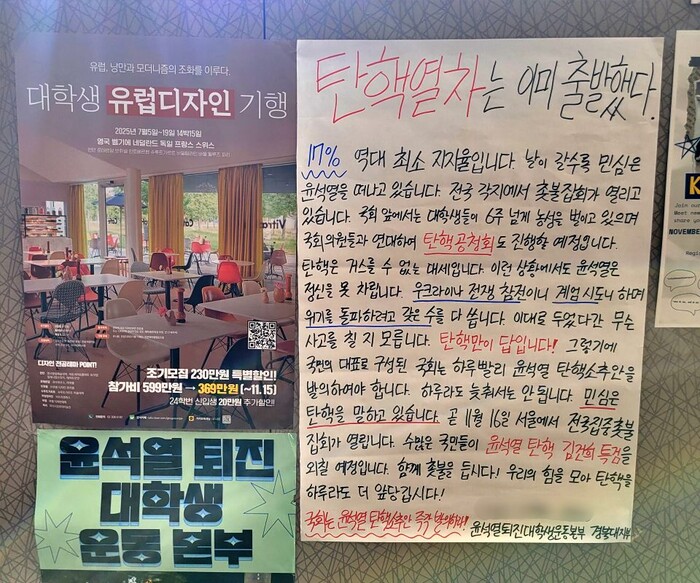 유럽, 낭만과 모더니즘의 조화를 이루다.
대학생 유럽디자인 기행
2025년 7월5일~19일 14박15일
영국 벨기에 네덜란드 독일 프랑스 스위스
디자인 전공생이라 POINT!
조기모집 230만원 특별할인!
참가비 599만원 → 369만원 (~11.15)
24학번 신입생 20만원 추가할인!
윤석열 퇴진
대학생
운동 본부
탄핵열차는 이미 출발했다.
17% 역대 최소 지지율입니다. 날이 갈수록 민심은
윤석열을 떠나고 있습니다. 전국 각지에서 촛불집회가 열리고
있습니다. 국회 앞에서는 대학생들이 6주 넘게 농성을 벌이고 있으며
국회의원들과 연대하여 탄핵공청회도 진행할 예정입니다.
탄핵은 거스를 수 없는 대세입니다. 이런 상황에서도 윤석열은
정신을 못 차립니다. 우크라이나 전쟁 참전이니 계엄 시도니 하며
위기를 돌파하려고 갖은 수를 다 씁니다. 이대로 두었다간 무슨
사고를 칠 지 모릅니다. 탄핵만이 답입니다! 그렇기에
국민의 대표로 구성된 국회는 하루빨리 윤석열 탄핵소추안을
발의하여야 합니다. 하루라도 늦춰서는 안 됩니다. 민심은
탄핵을 말하고 있습니다. 곧 11월 16일 서울에서 전국집중촛불
집회가 열립니다. 수많은 국민들이 윤석열 탄핵 김건희 특검을
외칠 예정입니다. 함께 촛불을 듭시다! 우리의 힘을 모아 탄핵을
하루라도 더 앞당깁시다!
국회는 윤석열 탄핵소추안 즉각 발의하라! 윤석열퇴진대학생운동본부 경북대지부
K
Join our
Meet new
shape yo
NOVEMBE